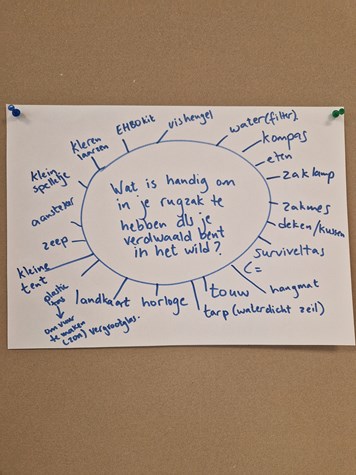 Wat is handig om
in je rugzak te
hebben als je
verdwaald bent
in het wild?
EHBOkit
vishengel
water(filter).
kompas
eten
zaklamp
zakmes
deken/kussen
surviveltas
(=
hangmat
touw
tarp (waterdicht zeil)
horloge
landkaart
vergrootglas.
plastic
tas
om vuur
te maken
(zon)
kleine
tent
zeep
aansteker
klein
spelletje
kleren
laarzen